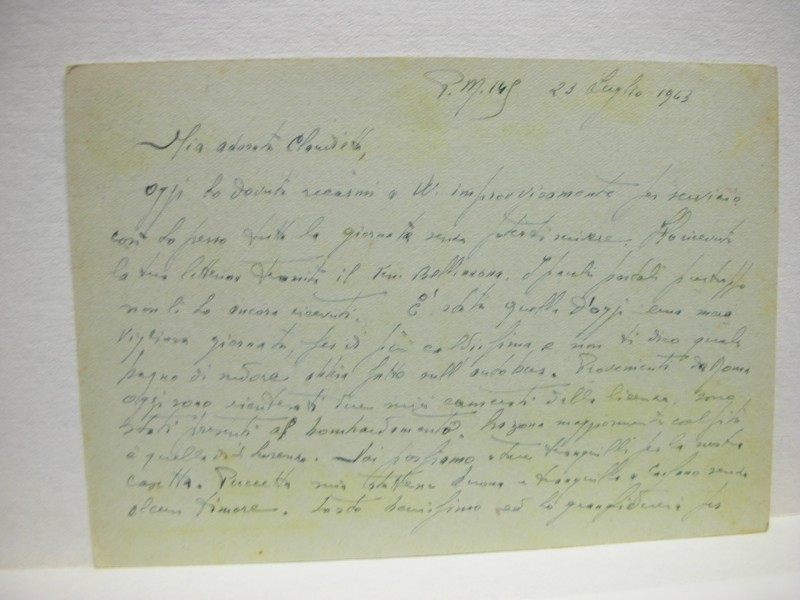 P.M. 145 23 Luglio 1943
Mia adorata Claudetta,
oggi ho dovuto recarmi a W. improvvisamente per servizio
così ho perso tutta la giornata senza poterti scrivere. Ho ricevuto
la tua lettera tramite il Ten. I pacchi postali purtroppo
non li ho ancora ricevuti. È stata quella d'oggi una mera
vigliosa giornata, per di più caldissima e non ti dico quale
bagno di sudore abbia fatto sull'autobus. Provenienti da Roma
oggi sono rientrati due miei camerati dalla licenza, sono
stati presenti al bombardamento. La zona maggiormente colpita
è quella di S. Lorenzo. Noi possiamo stare tranquilli per la nostra
casetta. mia buona e tranquilla a senza
alcun timore. Io sto benissimo ed ho per